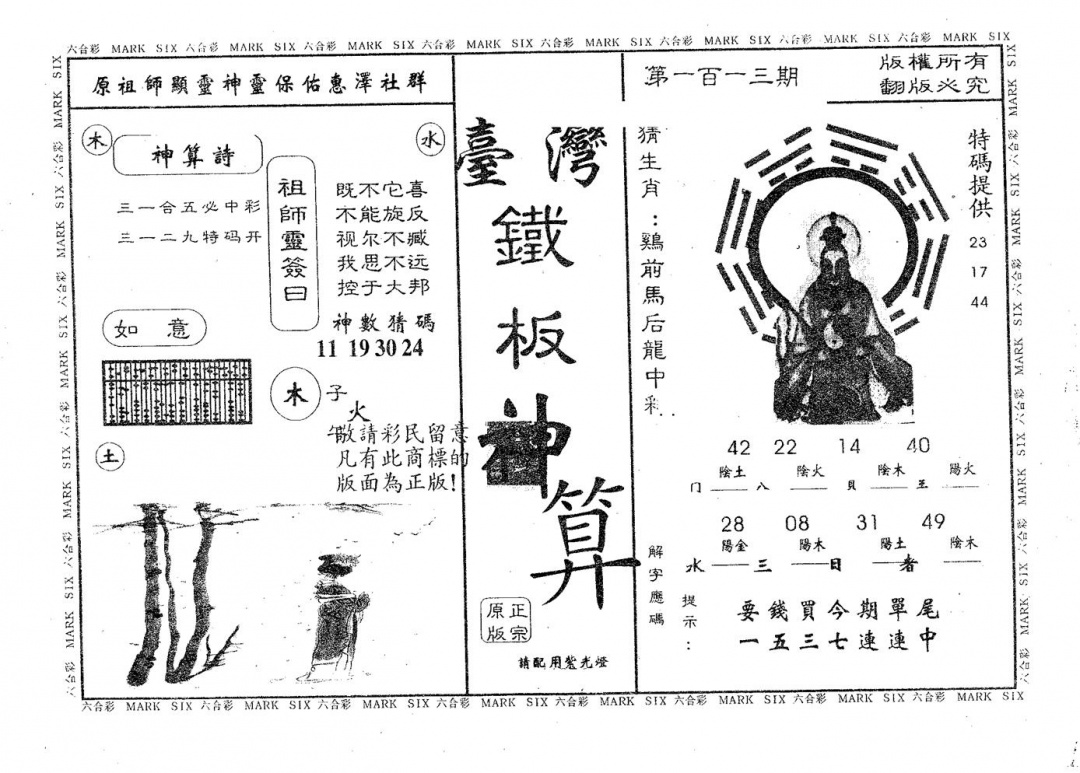 六合彩 MARK SIX 六合彩 MARK SIX 六合彩 MARK SIX 六合彩 MARK SIX 六合彩 MARK SIX 六合彩 MARK SIX 六合彩 MARK SIX 六合彩 MARK SIX
原祖師顯靈神靈保佑惠澤社群
木
水
神算詩
三一合五必中彩
三一二九特码开
祖師靈簽曰
既不它喜
不能旋反
视尔不臧
我思不远
控于大邦
神數猜碼
11 19 30 24
如意
木
子
火
午
敬請彩民留意
凡有此商標的
版面為正版!
土
臺灣
鐵
板
神
算
正宗
原版
請配用紫光燈
第一百一三期
版權所有
翻版必究
猜生肖:鷄前馬后龍中彩
特碼提供
23
17
44
42 22 14 40
陰土 陰火 陰木 陽火
门 八 貝 至
28 08 31 49
陽金 陽木 陽土 陰木
水 三 日 者
解字應碼
提示:
要錢買今期單尾
一五三七連連中
六合彩 MARK SIX 六合彩 MARK SIX 六合彩 MARK SIX 六合彩 MARK SIX 六合彩 MARK SIX 六合彩 MARK SIX 六合彩 MARK SIX 六合彩 MARK SIX